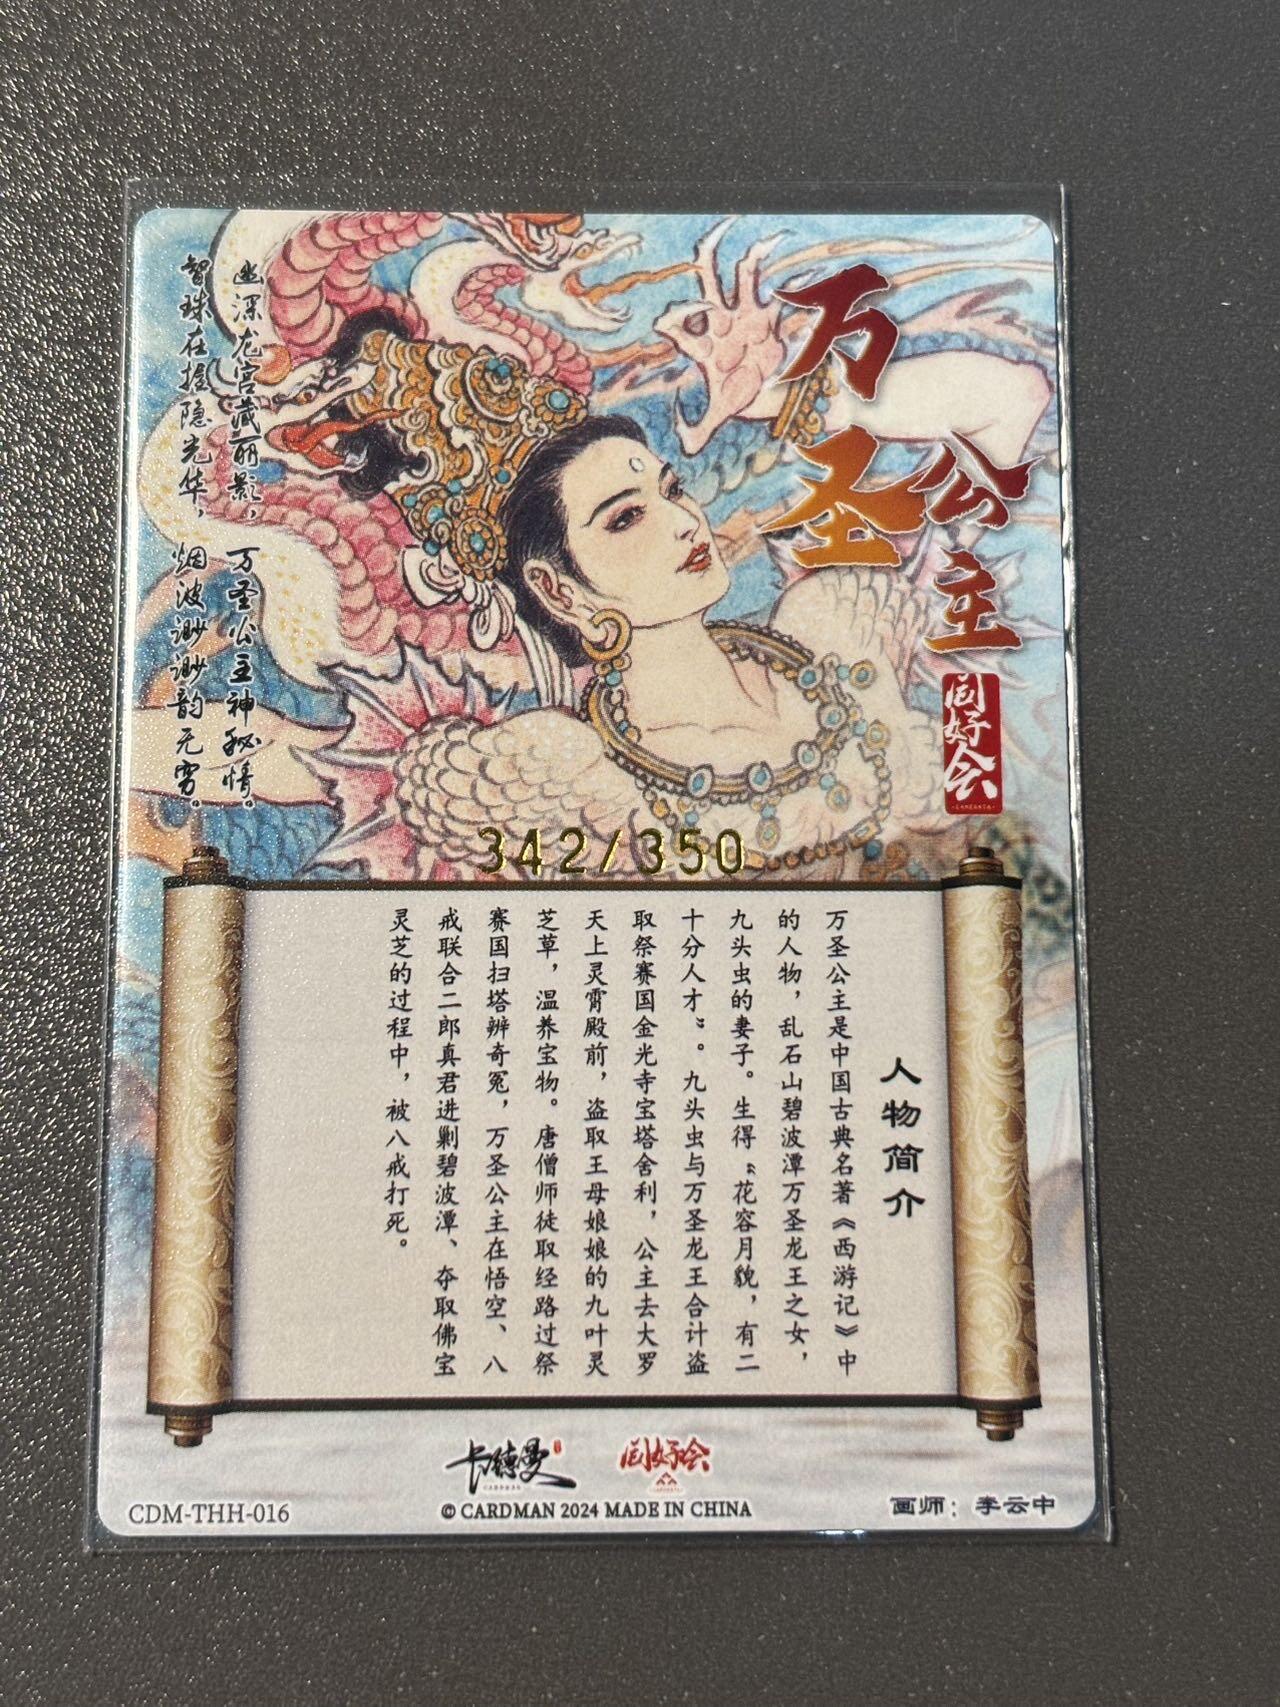 万圣
公主
同好会
幽深龙宫藏丽影，万圣公主神秘情。
智珠在握隐光华，烟波渺渺韵无穷。
342/350
人物简介
万圣公主是中国古典名著《西游记》中
的人物，乱石山碧波潭万圣龙王之女，
九头虫的妻子。生得“花容月貌，有二
十分人才”。九头虫与万圣龙王合计盗
取祭赛国金光寺宝塔舍利，公主去大罗
天上灵霄殿前，盗取王母娘娘的九叶灵
芝草，温养宝物。唐僧师徒取经路过祭
赛国扫塔辨奇冤，万圣公主在悟空、八
戒联合二郎真君进剿碧波潭、夺取佛宝
灵芝的过程中，被八戒打死。
卡德曼
同好会
CDM-THH-016
© CARDMAN 2024 MADE IN CHINA
画师：李云中